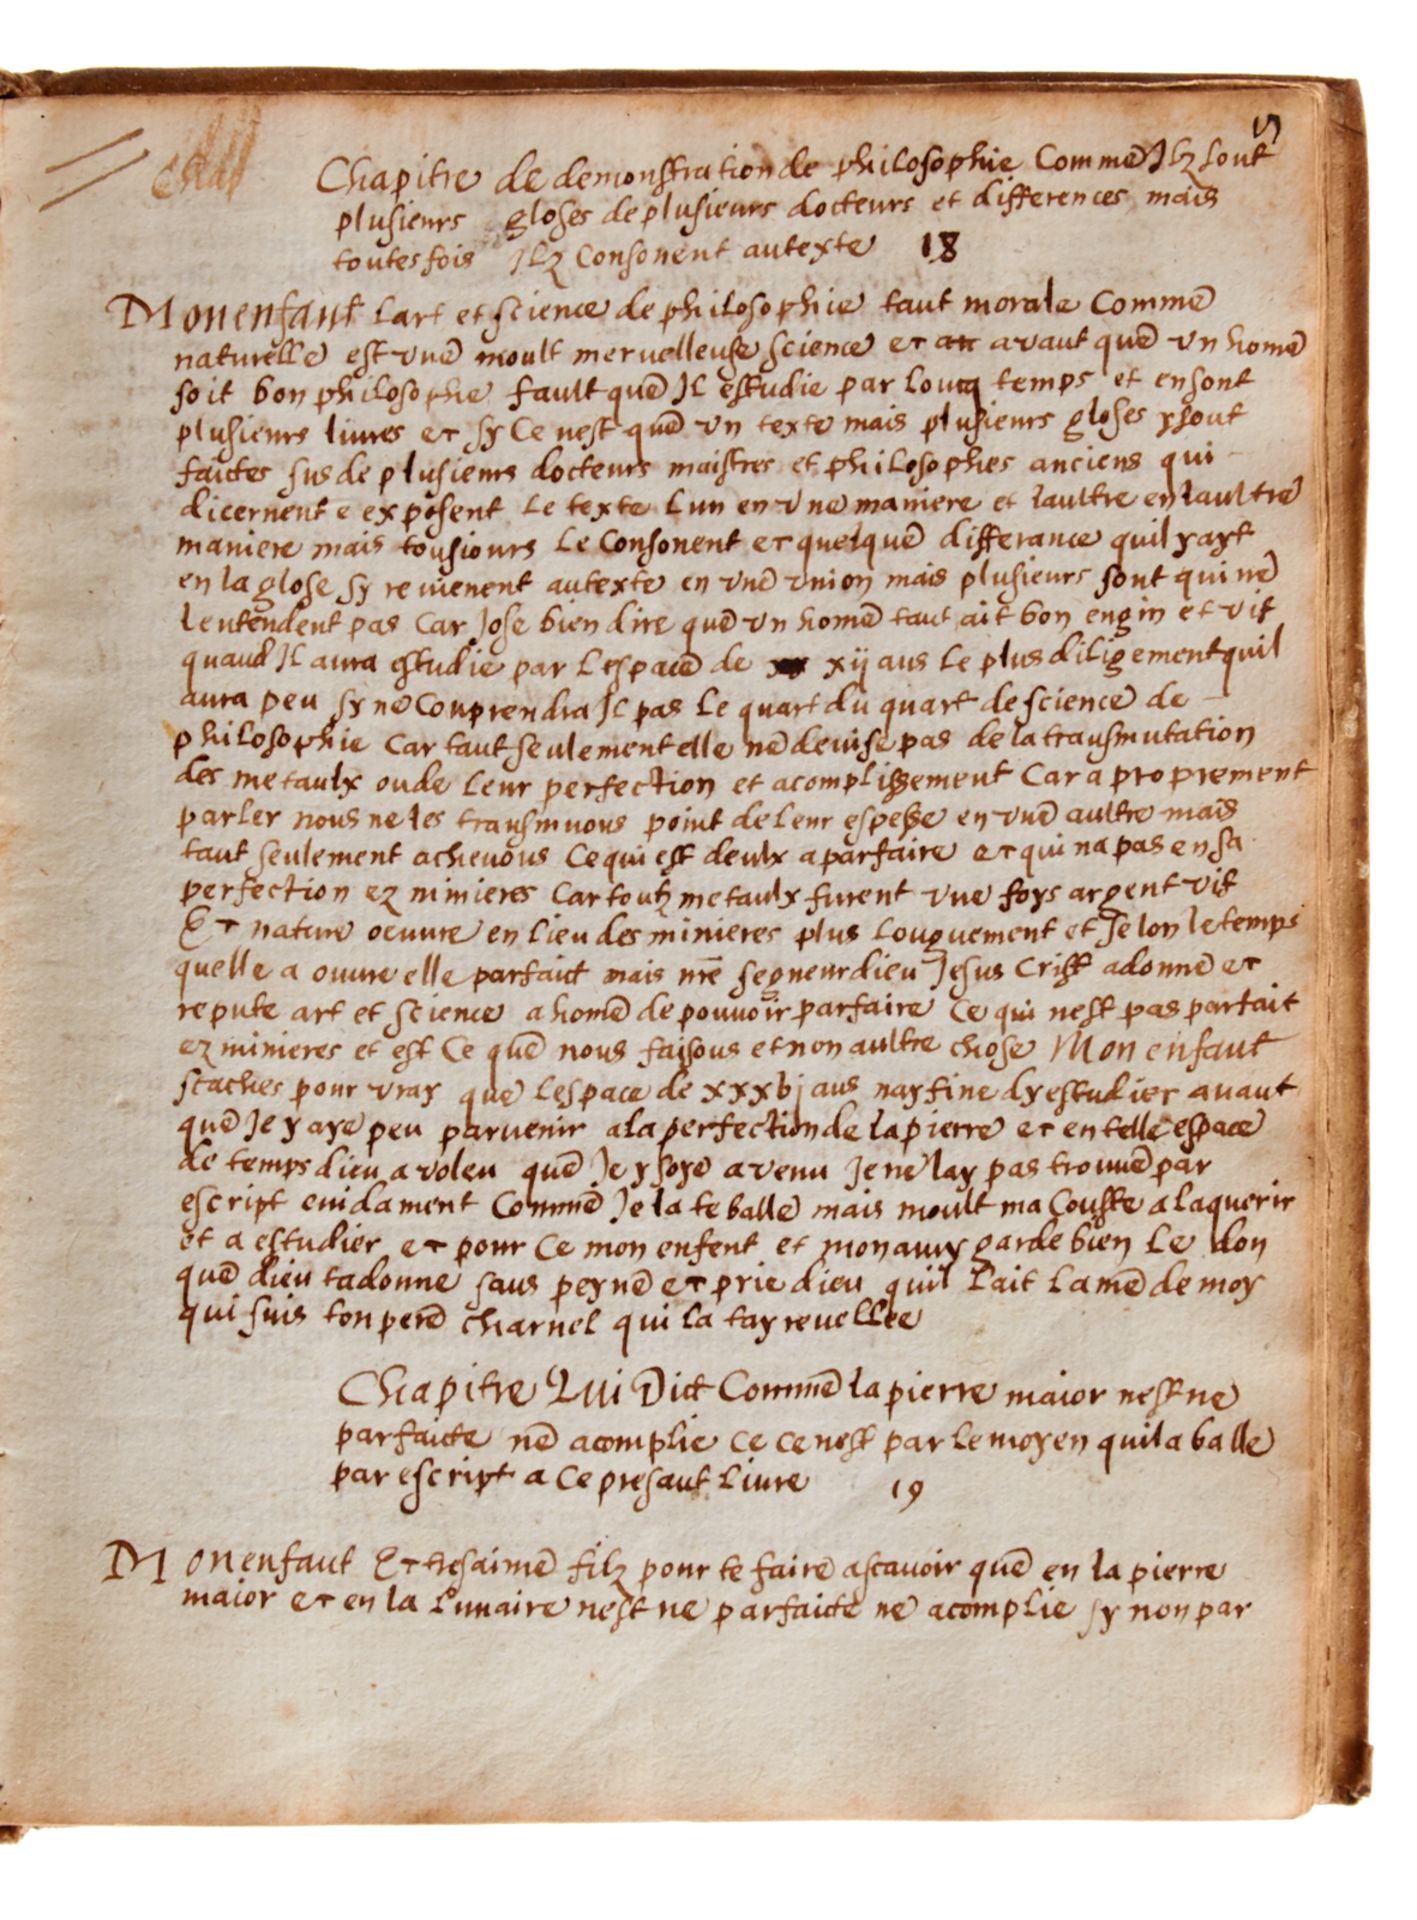 Chapitre de demonstration de philosophie Comme Ilz sont
plusieurs gloses de plusieurs docteurs et differences mais
toutesfois Ilz Consonent autexte 18
Mon enfant Lart et science de philosophie tant morale Comme
naturelle est une moult mervelleuse science et avant que un home
soit bon philosophe fault que Il estudie par Long temps et en sont
plusieurs livres et sy Ce nest que un texte mais plusieurs gloses y sont
faictes sus de plusieurs docteurs maistres et philosophes anciens qui
dicernent e exposent Le texte Lun en une maniere et laultre en laultre
maniere mais tousiours Le Consonent et quelque differance quil y ayt
en la glose sy revienent autexte en une union mais plusieurs sont qui ne
lentendent pas Car Jose bien dire que un home tant ait bon engin et vif
quand Il aura estudie par Lespace de xij ans Le plus diligement quil
aura peu sy ne Conprendra Il pas Le quart du quart de science de
philosophie Car tant seulement elle ne devise pas de la transmutation
des metaulx ou de Leur perfection et acomplissement Car a proprement
parler nous ne les transmuons point de Leur espesse en une aultre mais
tant seulement achevons Ce qui est deulx a parfaire et qui na pas en sa
perfection ez minieres Car toutz metaulx furent une foys argent vif
Et nature oeuvre en Lieu des minieres plus Longuement et selon le temps
quelle a ouvre elle parfaict mais nre segneur dieu Jesus Crist a donne et
repute art et science a home de pouvoir parfaire Ce qui nest pas parfait
ez minieres et est Ce que nous faisons et non aultre chose Mon enfant
scaches pour vray que Lespace de xxxbj ans nay fine dy estudier avant
que Je y aye peu parvenir a la perfection de la pierre et en telle espace
de temps dieu a volеu que Je y soye avenu Je ne lay pas trouve par
escript evidament Comme Je la te balle mais moult ma Couste a laquerir
et a estudier et pour Ce mon enfent et mon amy garde bien Le don
que dieu ta donne sans peyne et prie dieu quil Lait Lame de moy
qui suis ton pere charnel qui la tay revellee
Chapitre Qui Dict Comme la pierre maior nest ne
parfaicte ne acomplie Ce Ce nest par Le moyen quil a balle
par escript a Ce presant Livre 19
Mon enfant Et tresaime filz pour te faire ascavoir que en la pierre
maior et en la Lunaire nest ne parfaicte ne acomplie sy non par